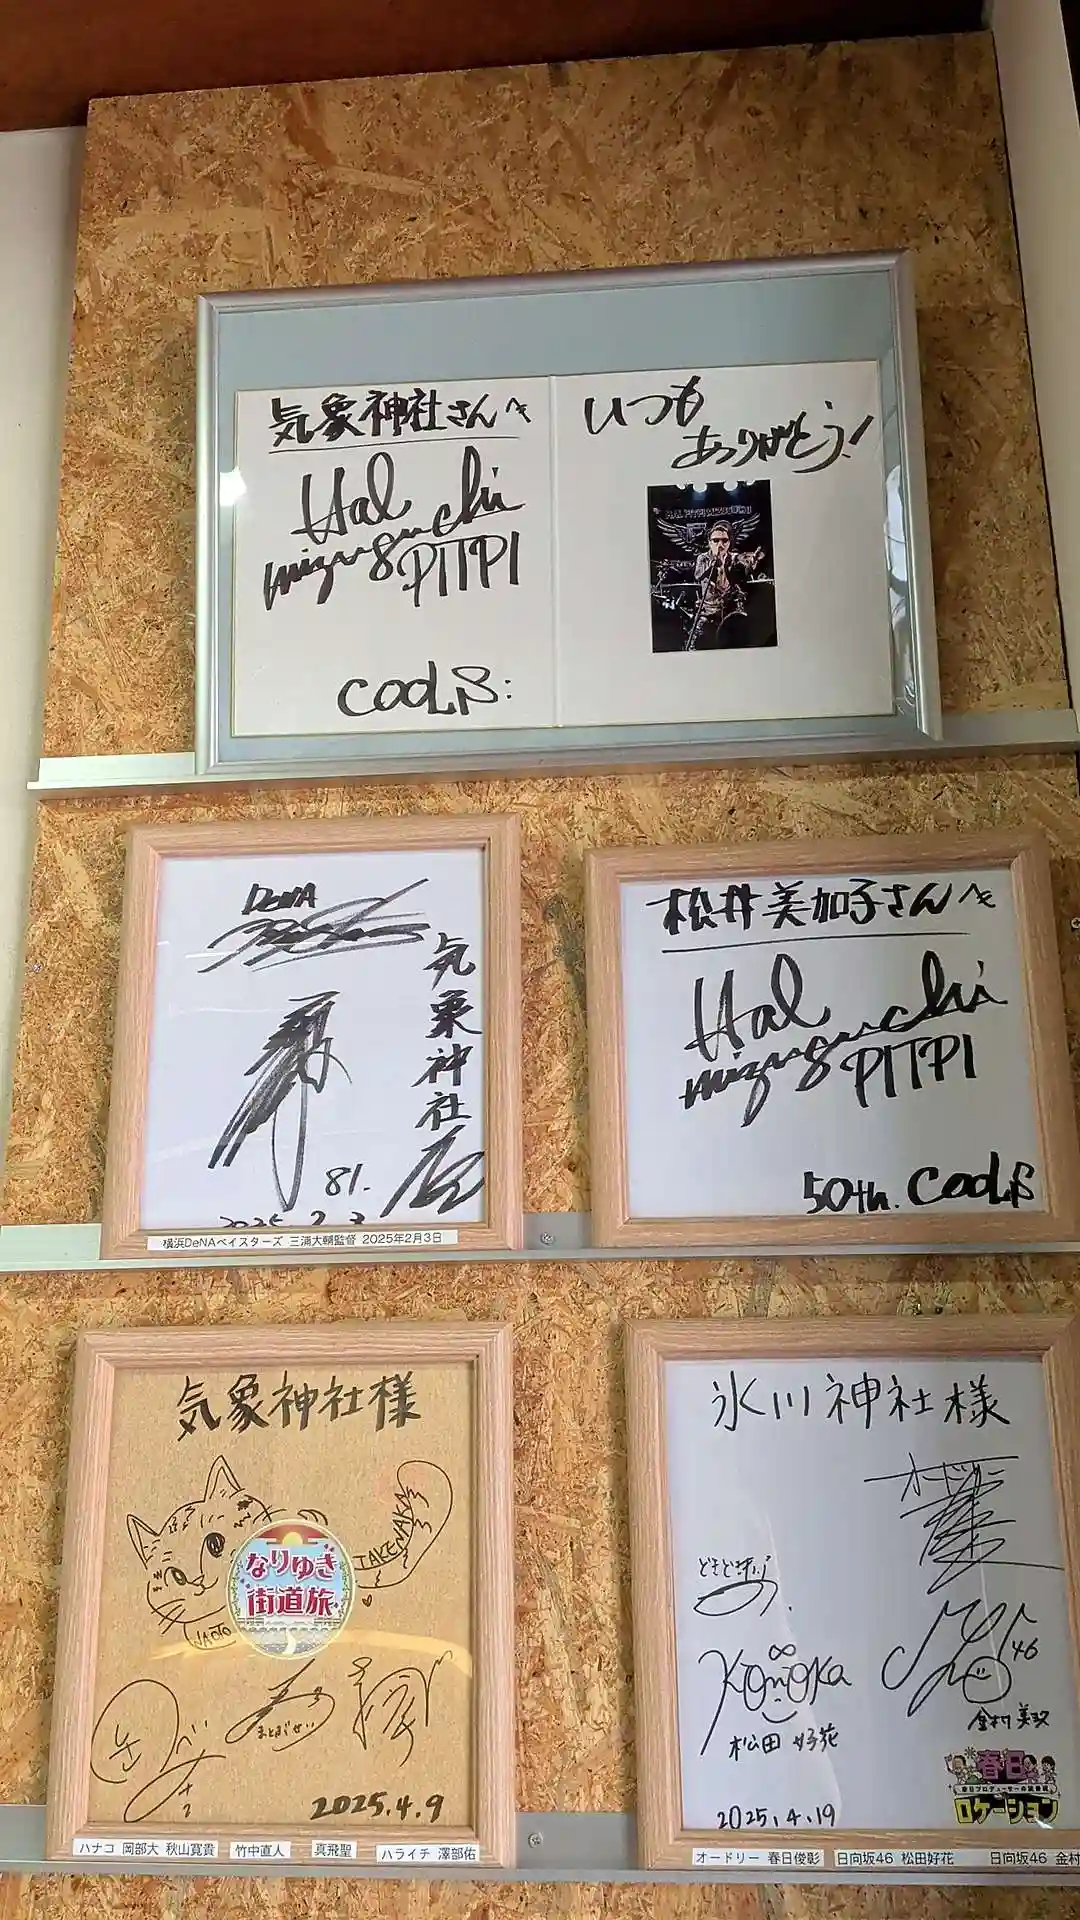 気象神社さんへ
Hal
mizuguchi
PITPI
COOLS:
いつも
ありがとう!
DeNA
気象神社
81.
2025.2.3
横浜DeNAベイスターズ 三浦大輔監督 2025年2月3日
松井美加子さんへ
Hal
mizuguchi
PITPI
50th. COOLS
気象神社様
TAKENAKA
NAOTO
なりゆき
街道旅
2025.4.9
ハナコ 岡部大 秋山寛貴
竹中直人
真飛聖
ハライチ 澤部佑
氷川神社様
オードリー
Konoka
松田 好花
46
金村 美玖
春日
ロケーション
2025.4.19
オードリー 春日俊彰
日向坂46 松田好花
日向坂46 金村